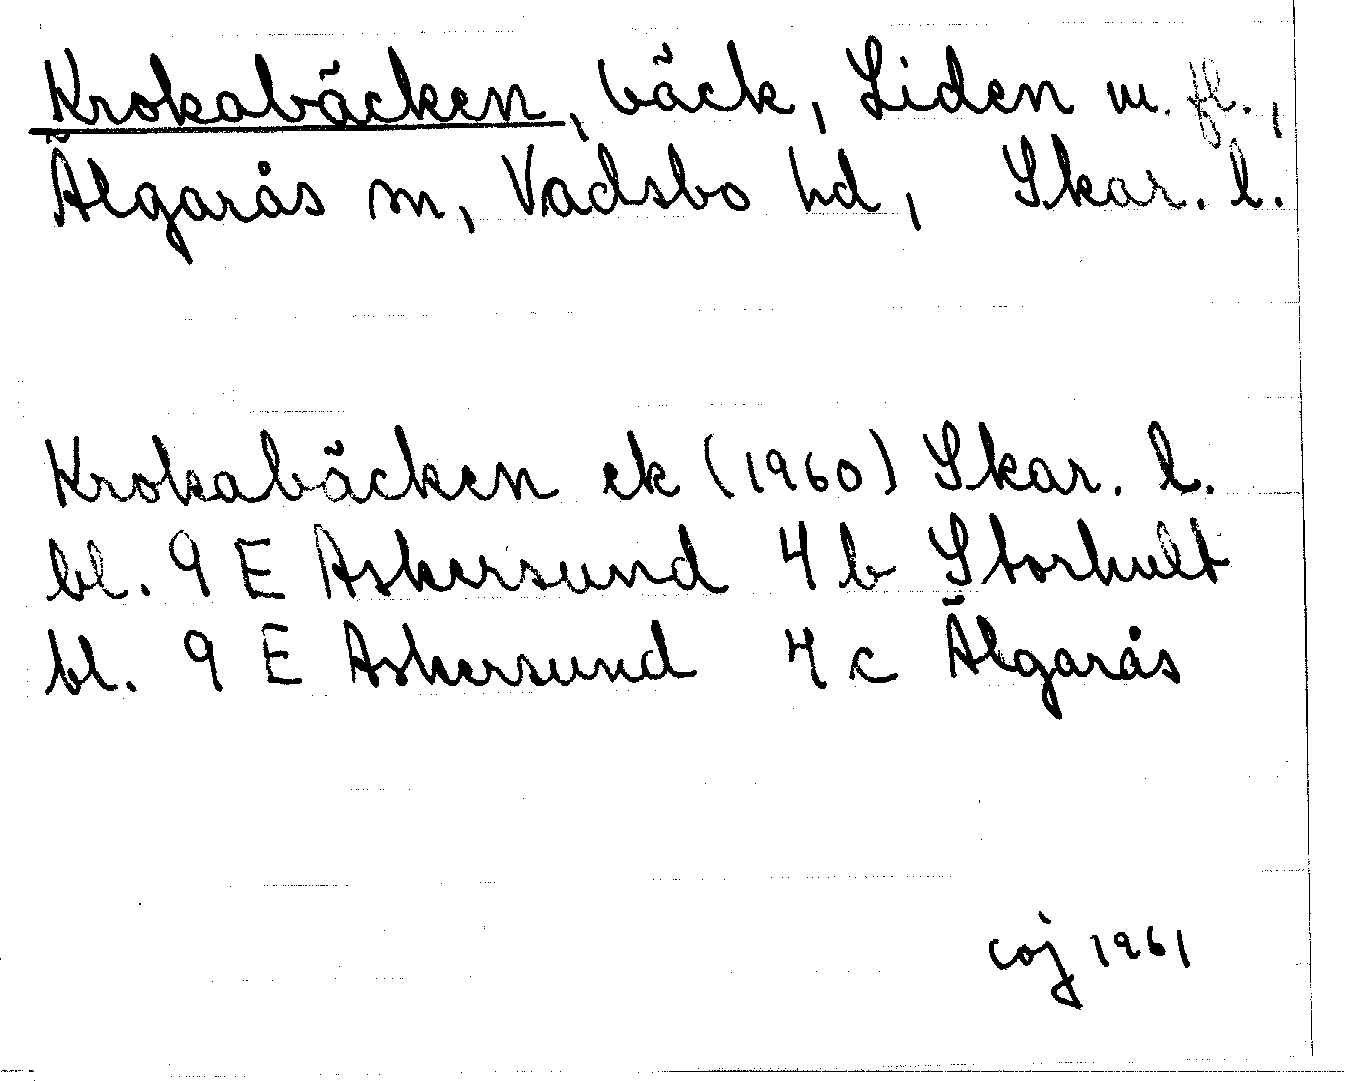 Krokabäcken, bäck, Liden m. fl.,
Älgarås sn, Vadsbo hd, Skar. l.
Krokabäcken ek (1960) Skar. l.
bl. 9 E Askersund 4 b Storhult
bl. 9 E Askersund 4 c Älgarås
coj 1961